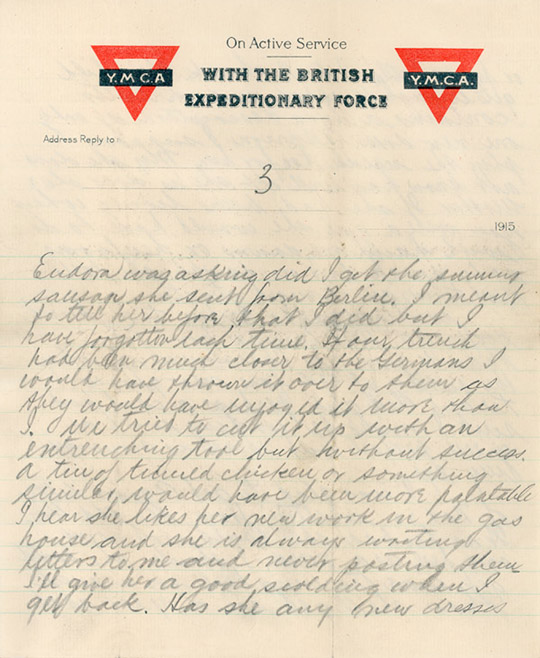 On Active Service
Y.M.C.A
WITH THE BRITISH
Y.M.C.A.
EXPEDITIONARY FORCE
Address Reply to
3
1915
Eudora was asking did I get the summer
sausage she sent from Berlin. I meant
to tell her before that I did but I
have forgotton each time, if our trench
had been much closer to the Germans I
would have thrown it over to them as
they would have enjoyed it more than
I. We tried to cut it up with an
entrenching tool but without success.
a tin of tinned chicken or something
similar would have been more palatable
I hear she likes her new work in the gas
house and she is always writing
letters to me and never posting them
I'll give her a good scolding when I
get back. Has she any new dresses